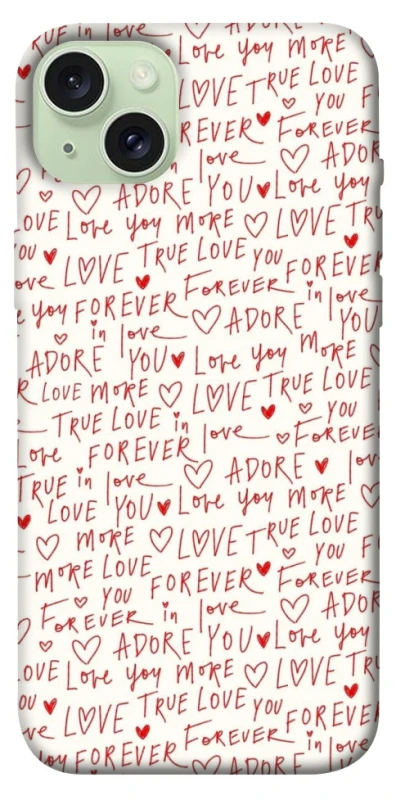 TRUE in love Love you MORE
LOVE TRUE LOVE
YOU F
REVER FOREVER
in love ADOR
ADORE YOU Love you
LOVE Love you MORE LOVE TRU
YOU LOVE TRUE LOVE YOU FOREVER
love
e you FOREVER FOREVER in love
in love ADORE YOU
ADORE YOU Love you MORE
R LOVE MORE LOVE TRUE LOVE
TRUE LOVE in love YOU
Love FOREVER FOREVE
TRUE in love ADORE lov
LOVE YOU Love you MORE
MORE LOVE TRUE LOVE
MORE LOVE YOU F
YOU FOREVER FOREVER
FOREVER in love ADOR
ADORE YOU Love you
OVE Love you MORE LOVE TRU
YOU LOVE TRUE LOVE YOU FOREVER
ove
you FOREVER FOREVER in love
in love ADORE YOU